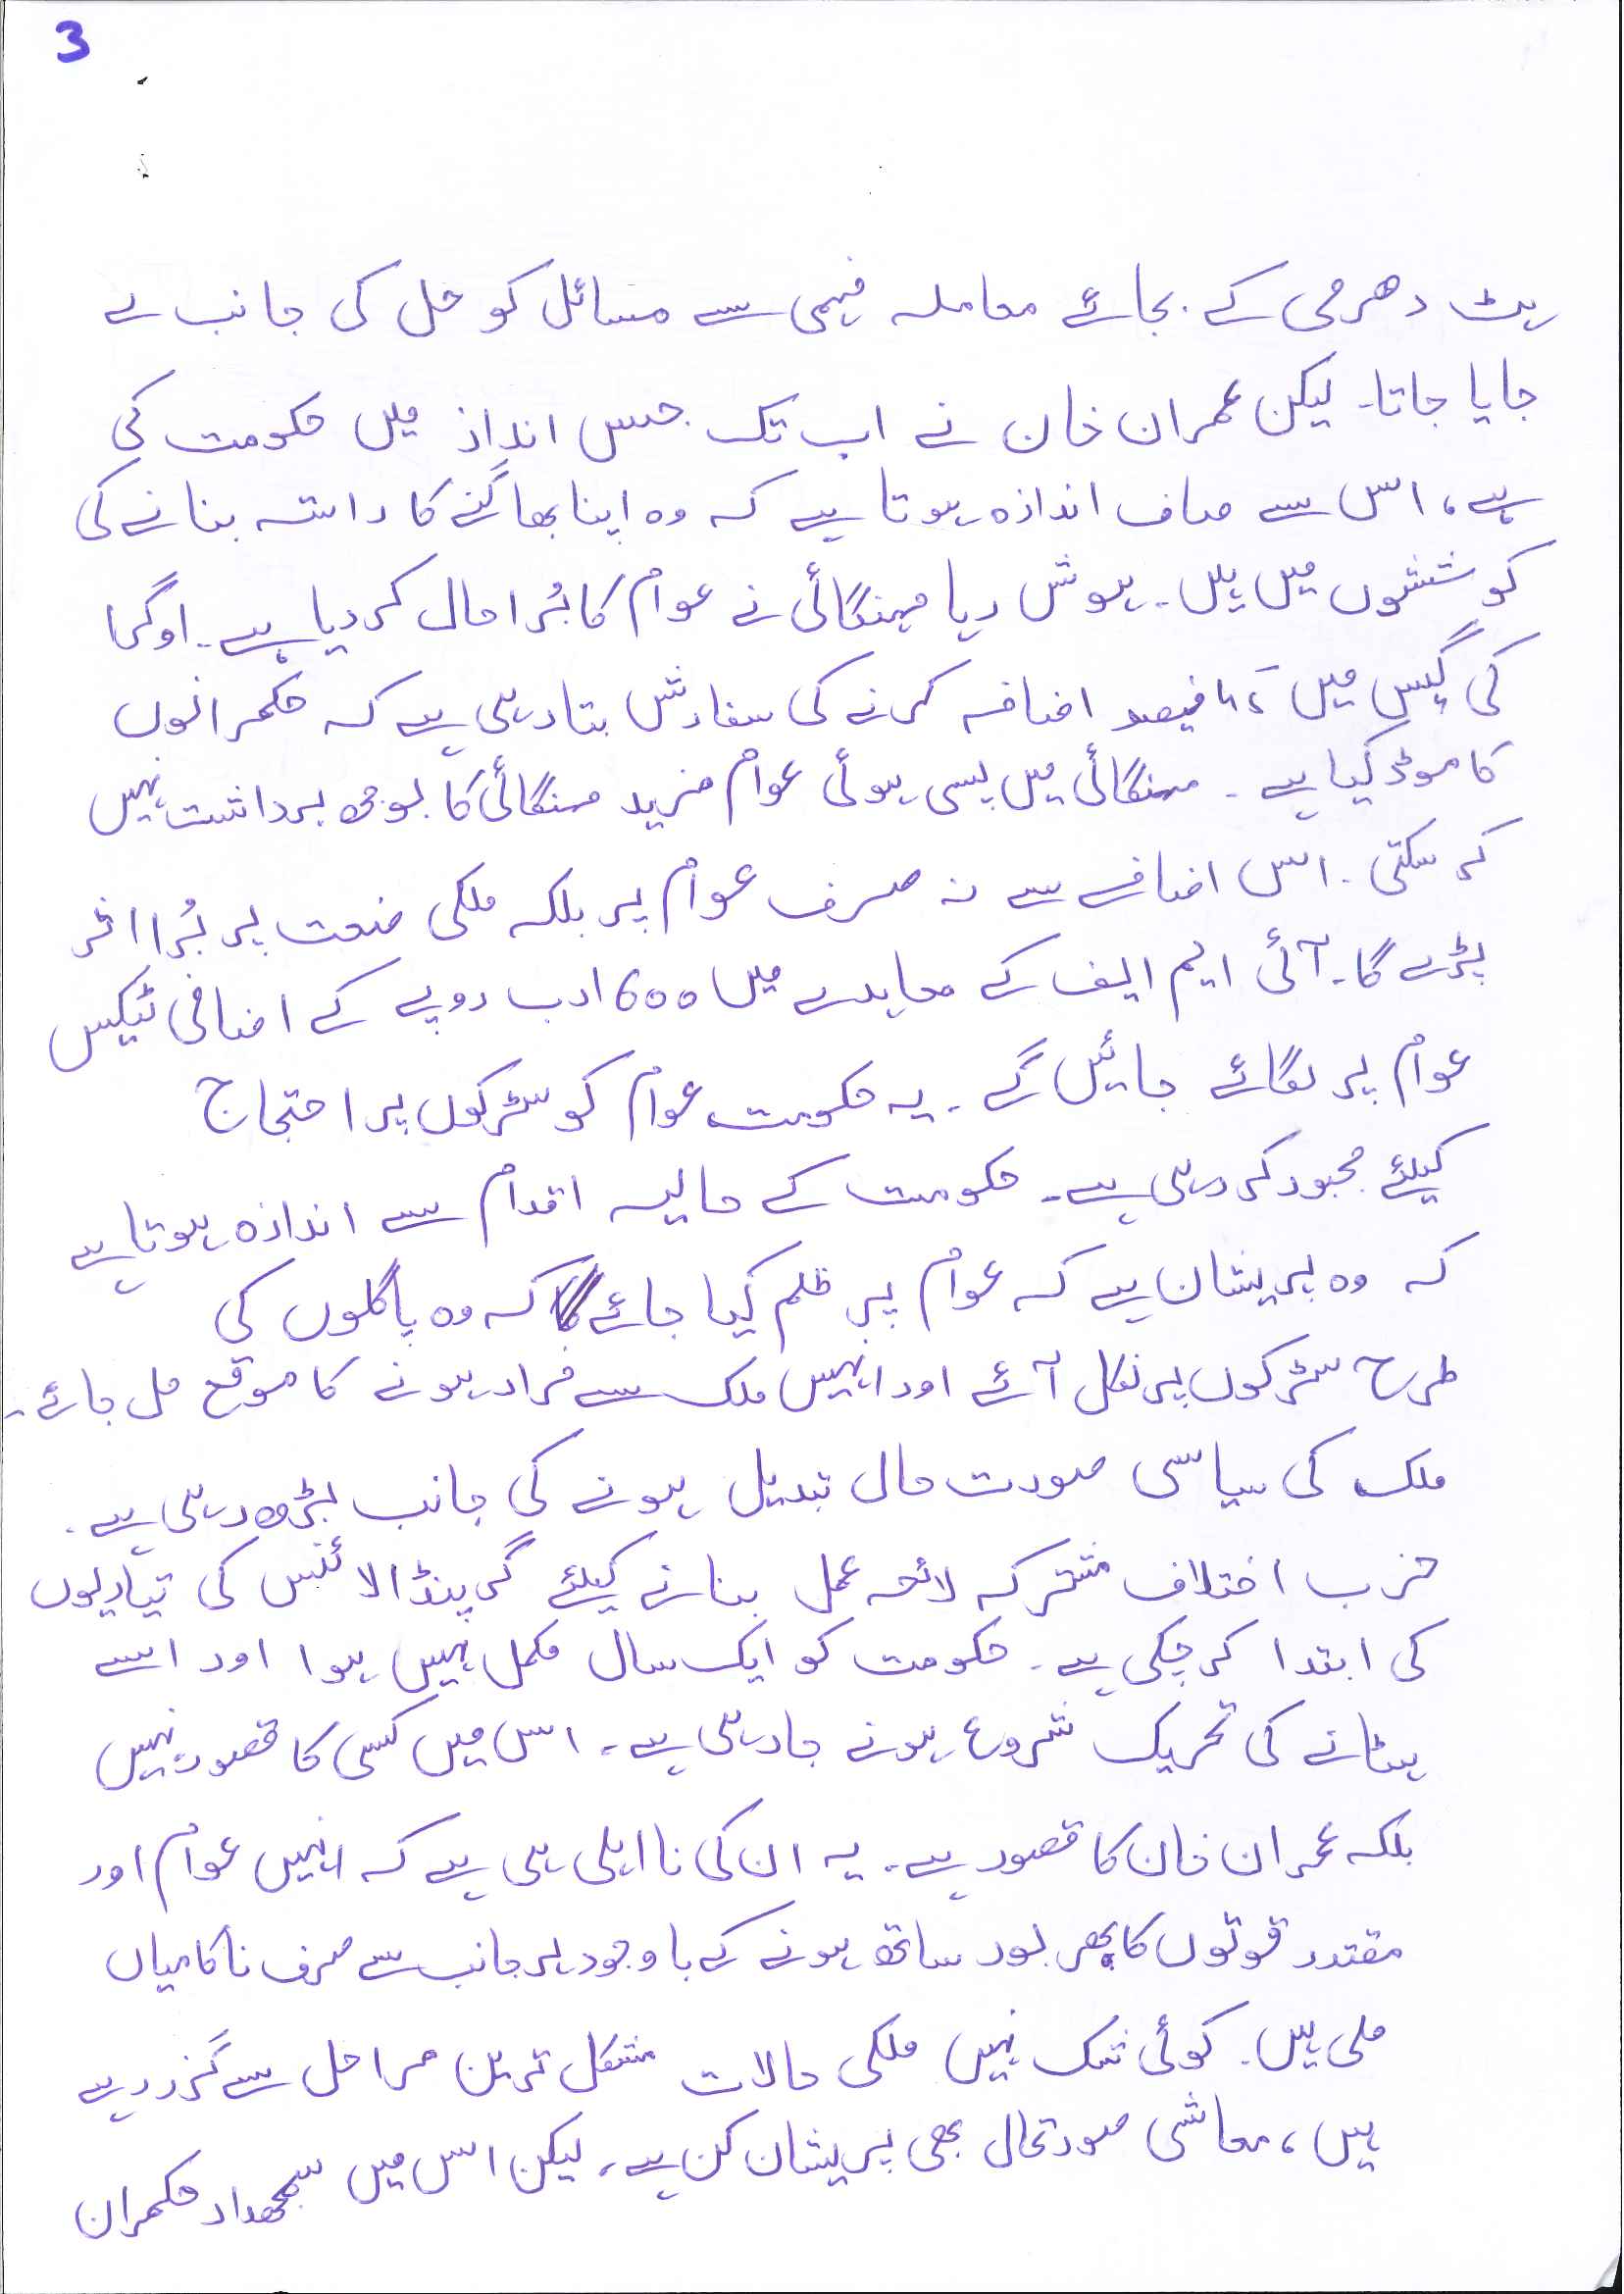 3
ہٹ دھرمی کے بجائے معاملہ فہمی سے مسائل کو حل کی جانب لے
جایا جاتا۔ لیکن عمران خان نے اب تک جس انداز میں حکومت کی
ہے، اس سے صاف اندازہ ہوتا ہے کہ وہ اپنا بھاگنے کا راستہ بنانے کی
کوششوں میں ہیں۔ ہوش ربا مہنگائی نے عوام کا بُرا حال کر دیا ہے۔ اوگرا
کی گیس میں فیصد اضافہ کرنے کی سفارش بتا رہی ہے کہ حکمرانوں
کا موڈ کیا ہے۔ مہنگائی میں پسی ہوئی عوام مزید مہنگائی کا بوجھ برداشت نہیں
کر سکتی۔ اس اضافے سے نہ صرف عوام پر بلکہ ملکی صنعت پر بُرا اثر
پڑے گا۔ آئی ایم ایف کے معاہدے میں 600 ارب روپے کے اضافی ٹیکس
عوام پر لگائے جائیں گے۔ یہ حکومت عوام کو سڑکوں پر احتجاج
کیلئے مجبور کر رہی ہے۔ حکومت کے حالیہ اقدام سے اندازہ ہوتا ہے
کہ وہ پریشان ہے کہ عوام پر ظلم کیا جائے کہ وہ پاگلوں کی
طرح سڑکوں پر نکل آئے اور انہیں ملک سے فرار ہونے کا موقع مل جائے۔
ملک کی سیاسی صورت حال تبدیل ہونے کی جانب بڑھ رہی ہے۔
حزب اختلاف مشترکہ لائحہ عمل بنانے کیلئے گرینڈ الائنس کی تیاریوں
کی ابتدا کر چکی ہے۔ حکومت کو ایک سال مکمل نہیں ہوا اور اسے
ہٹانے کی تحریک شروع ہونے جا رہی ہے۔ اس میں کسی کا قصور نہیں
بلکہ عمران خان کا قصور ہے۔ یہ ان کی نااہلی ہی ہے کہ انہیں عوام اور
مقتدر قوتوں کا بھرپور ساتھ ہونے کے باوجود ہر جانب سے صرف ناکامیاں
ملی ہیں۔ کوئی شک نہیں ملکی حالات مشکل ترین مراحل سے گزر رہے
ہیں، معاشی صورتحال بھی پریشان کن ہے، لیکن اس میں سمجھدار حکمران